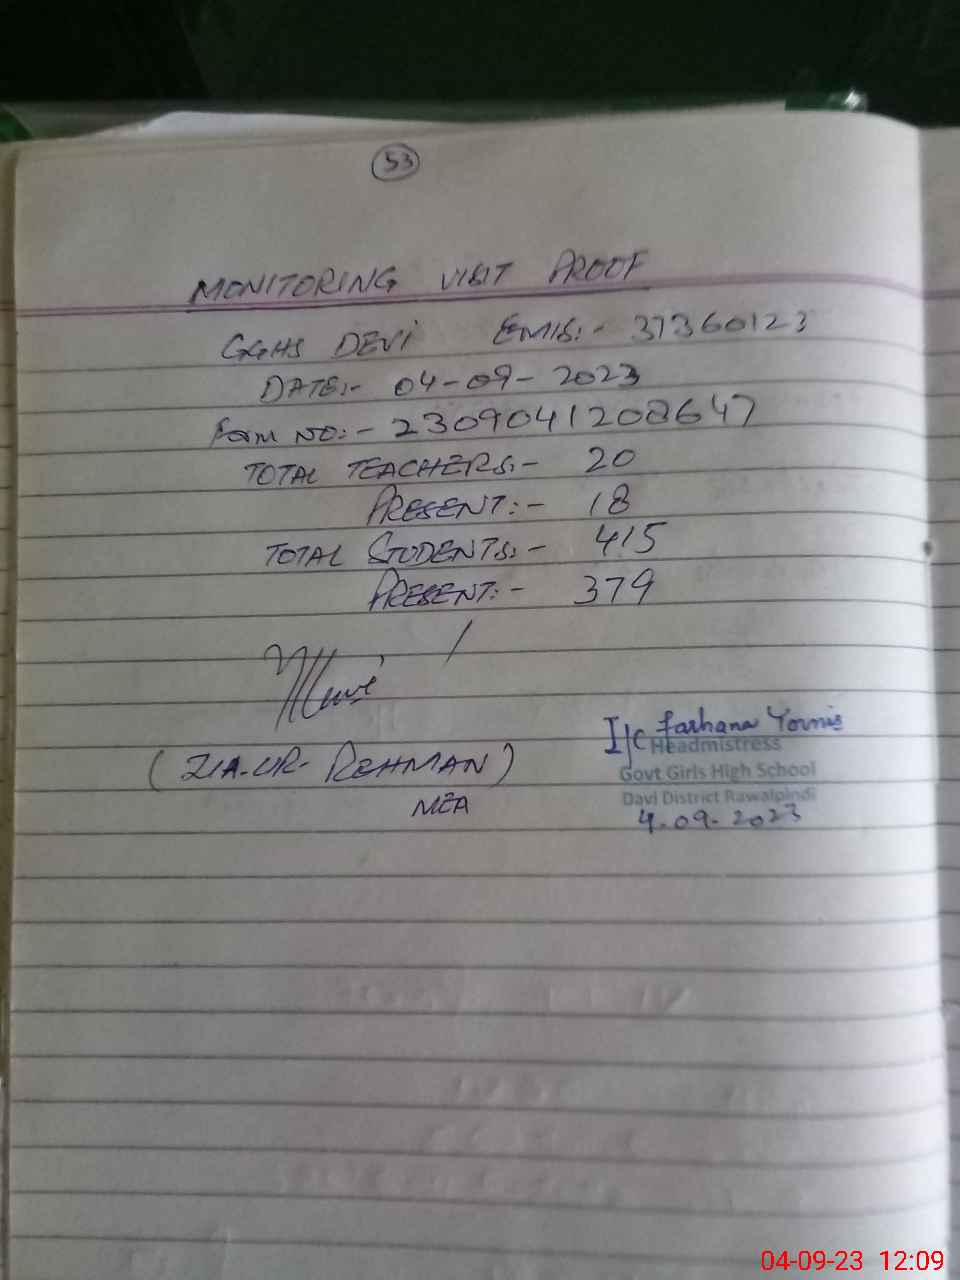 53
MONITORING VISIT PROOF
GGHS DEVI EMIS:- 37360123
DATE:- 04-09-2023
Form NO:- 2309041208647
TOTAL TEACHERS:- 20
PRESENT:- 18
TOTAL STUDENTS:- 415
PRESENT:- 379
(ZIA-UR-REHMAN)
MEA
I/C Farhana Younis
Headmistress
Govt Girls High School
Davi District Rawalpindi
4-09-2023
04-09-23 12:09